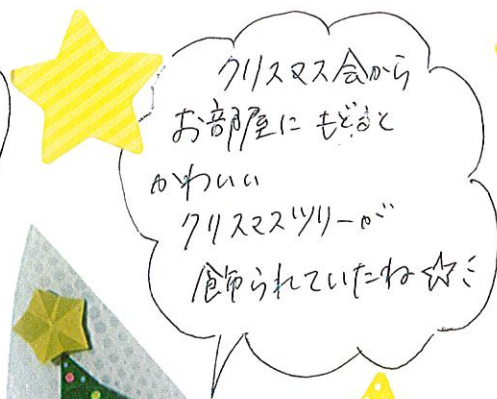 クリスマス会から
お部屋にもどると
かわいい
クリスマスツリーが
飾られていたね☆ミ